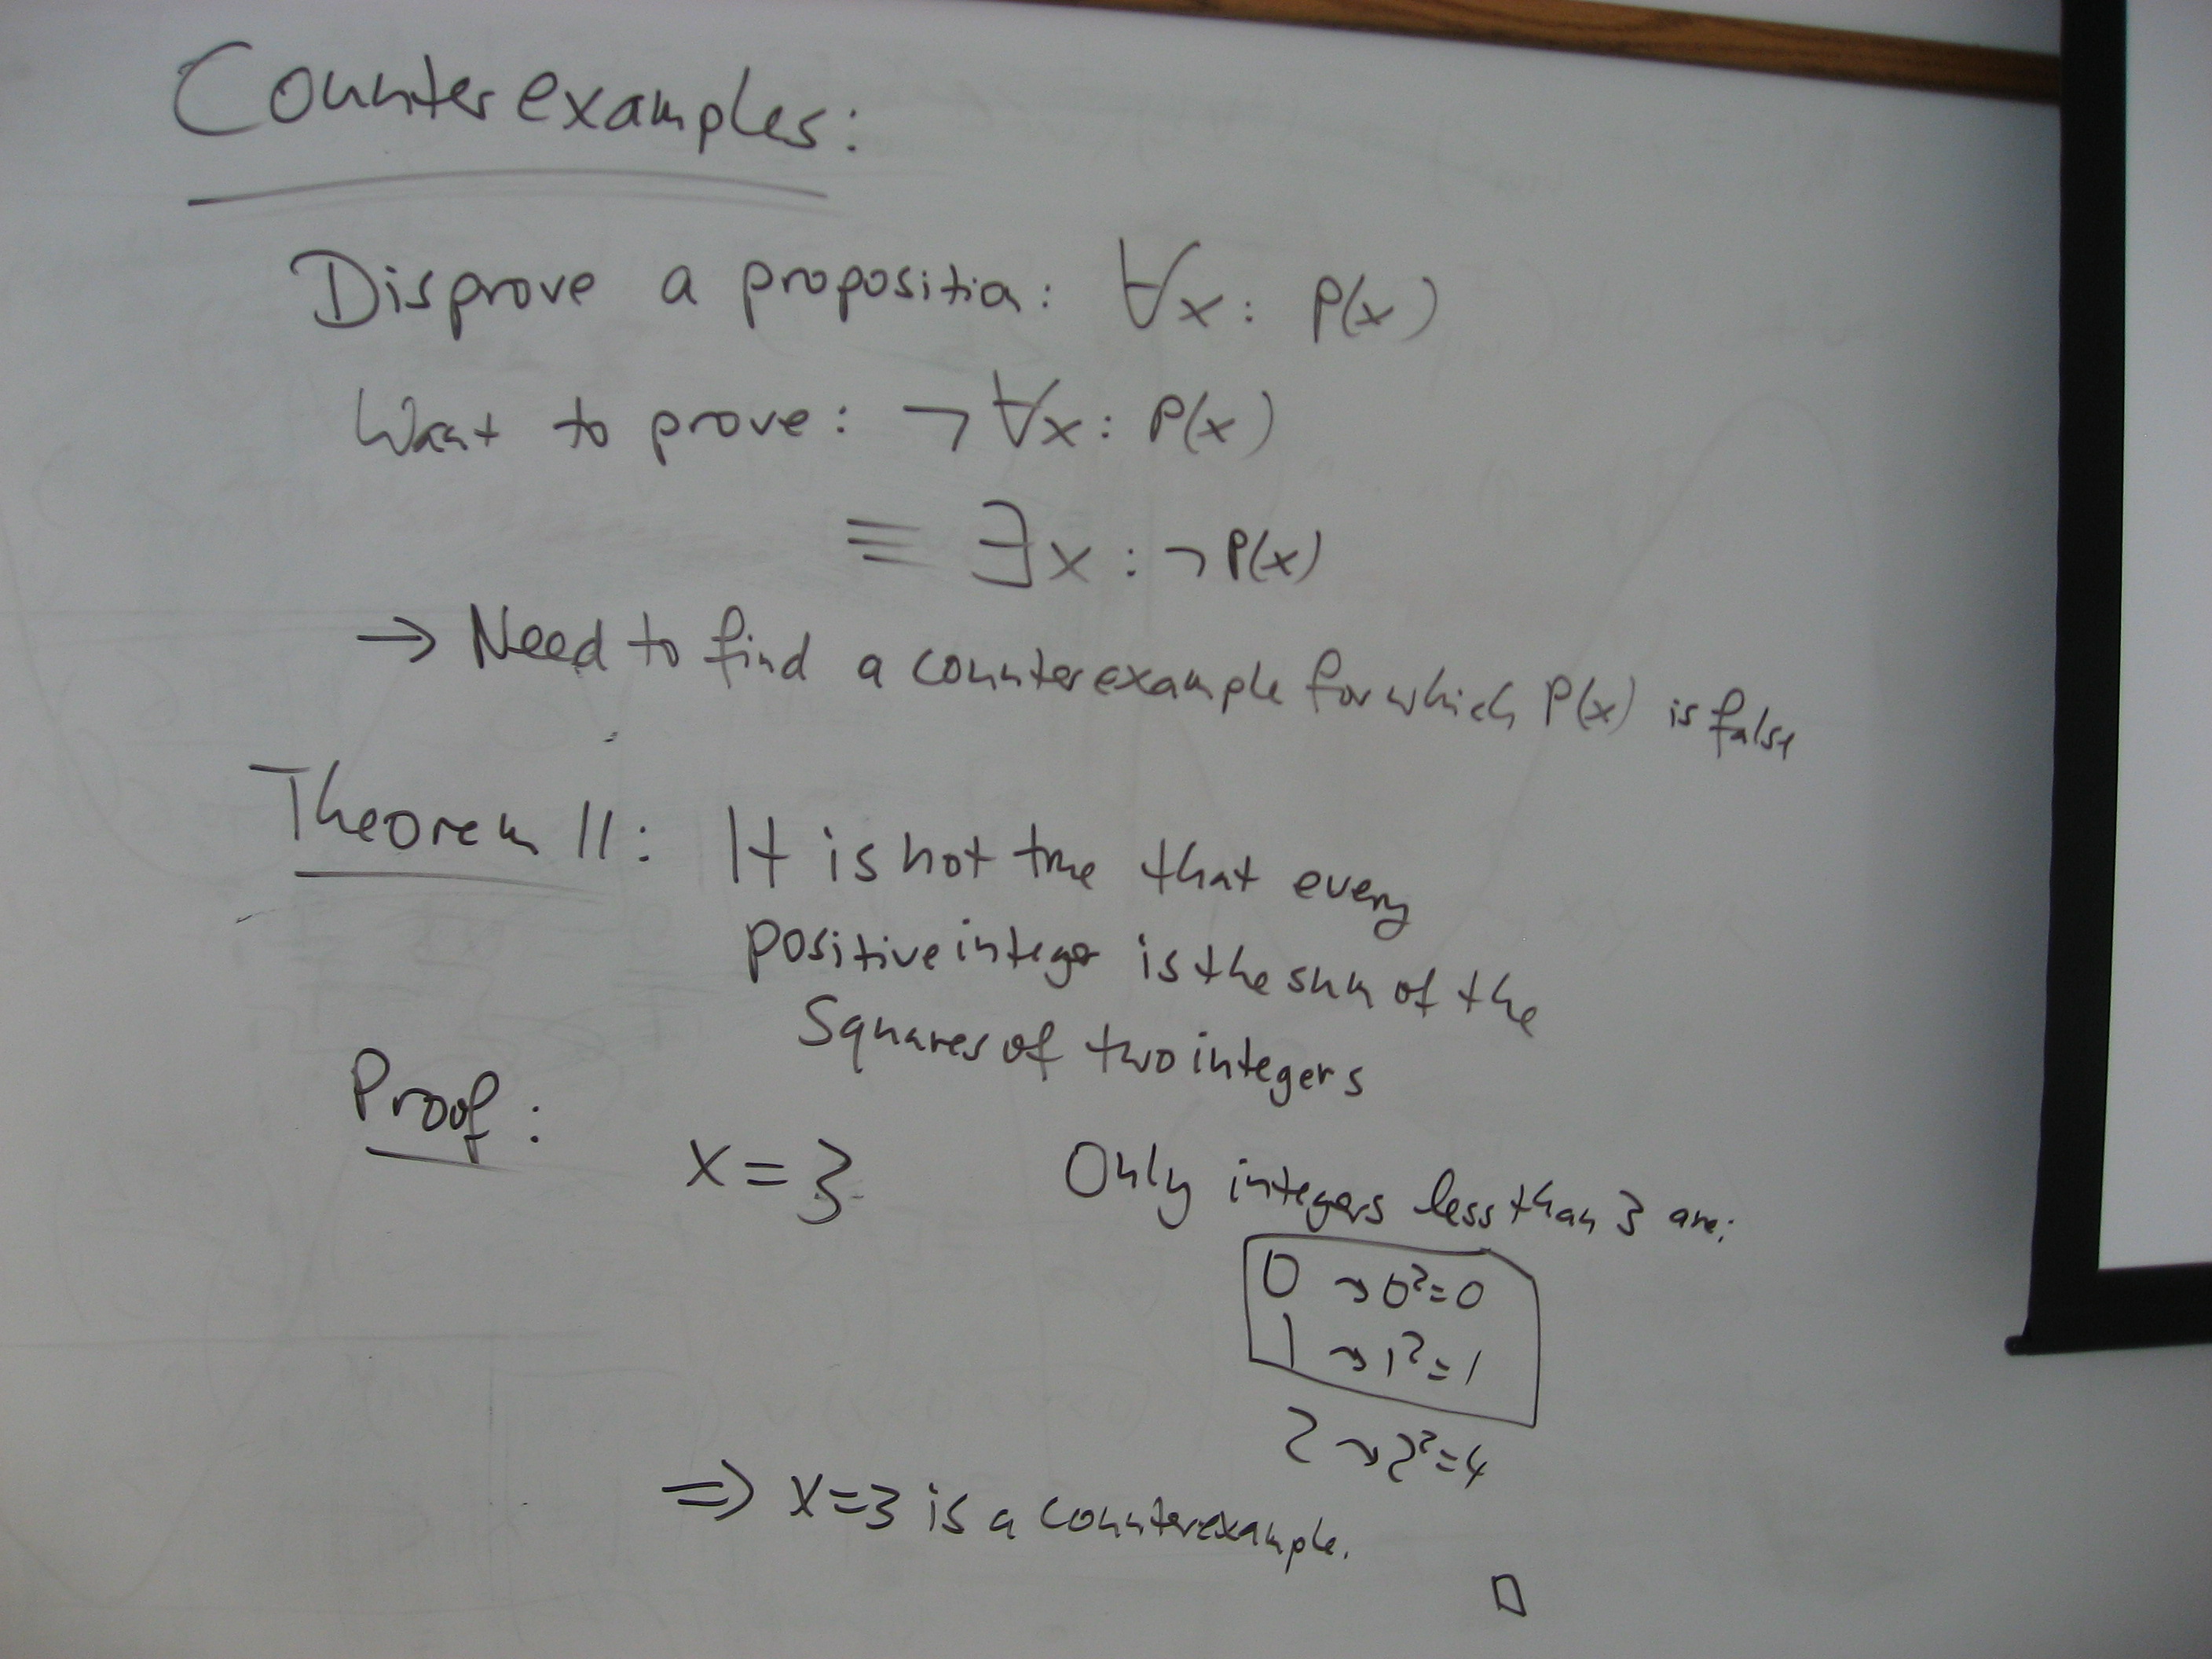 Counterexamples:
Disprove a proposition: ∀x: P(x)
Want to prove: ¬∀x: P(x)
≡ ∃x: ¬P(x)
→ Need to find a counterexample for which P(x) is false
Theorem 11: It is not true that every
positive integer is the sum of the
squares of two integers
Proof:
x=3 Only integers less than 3 are:
0 ⇝ 0²=0
1 ⇝ 1²=1
2 ⇝ 2²=4
⇒ x=3 is a counterexample.
□